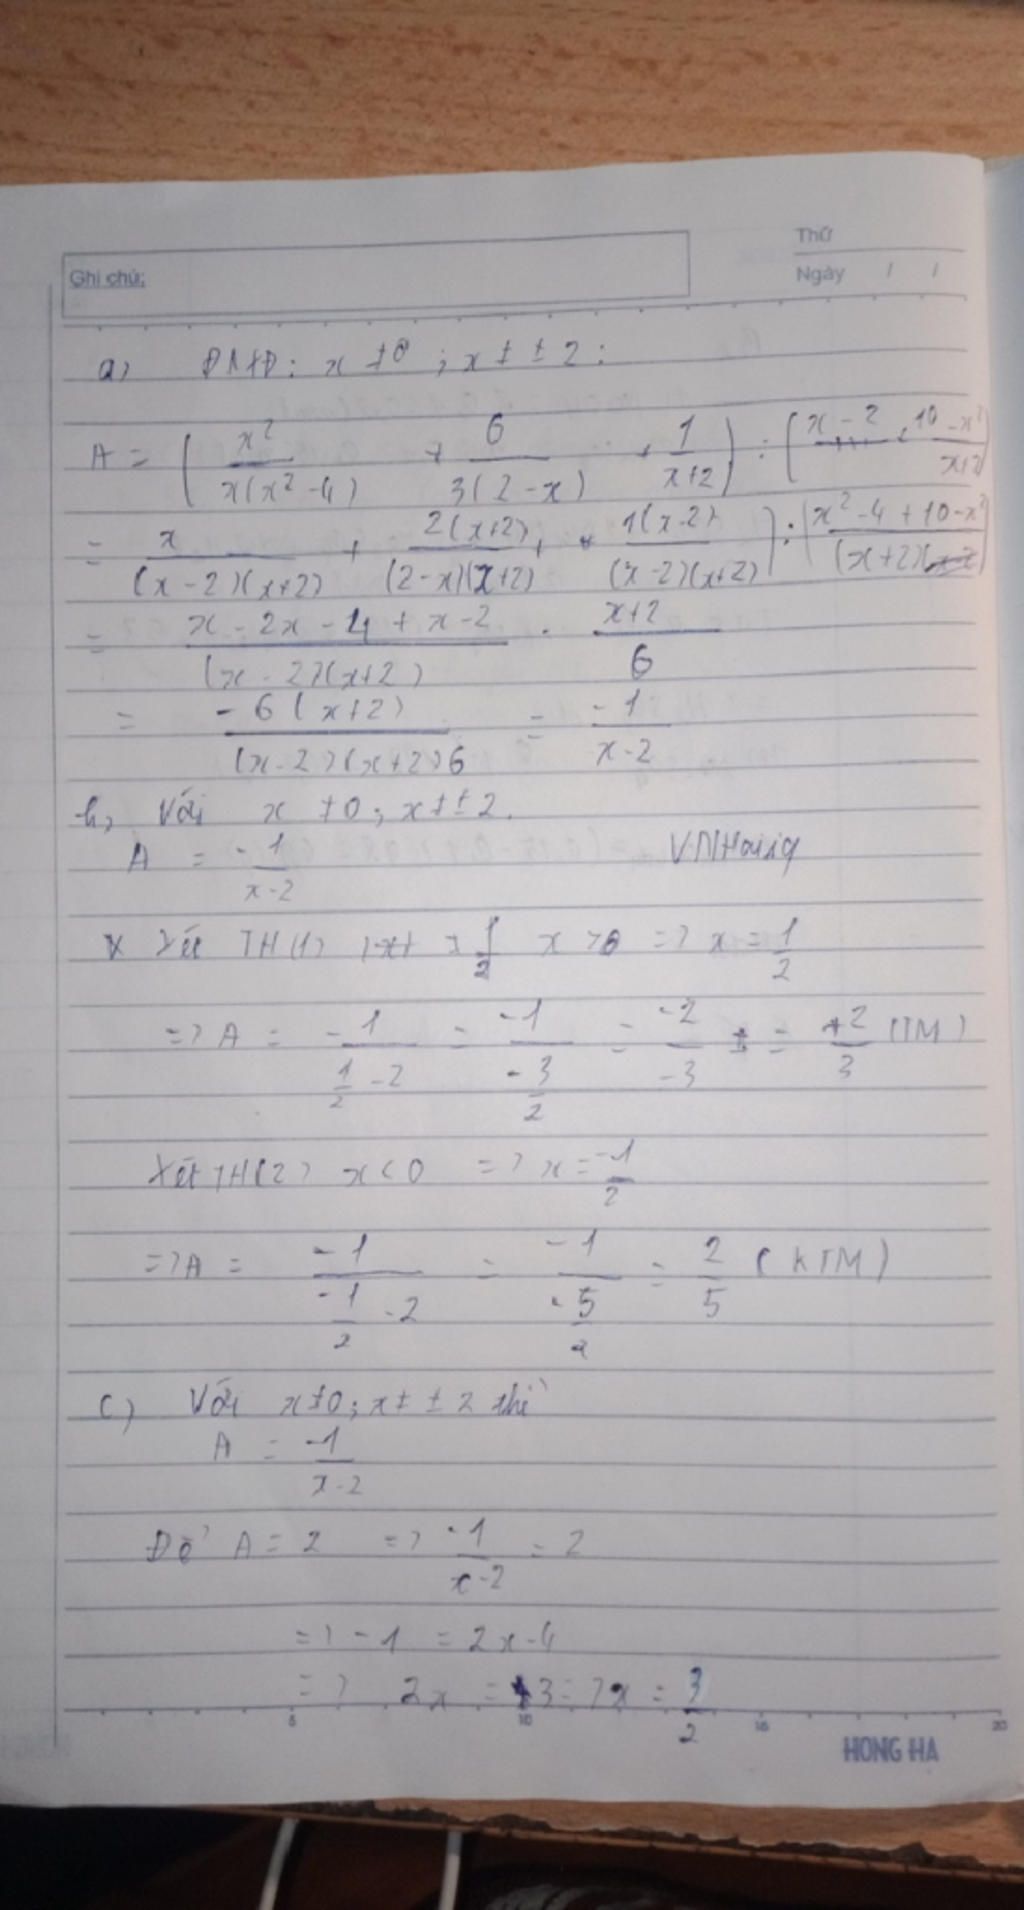 Thứ
Ghi chú:
Ngày / /
a) ĐKXĐ: x ≠ 0 ; x ≠ ± 2 :
A = ( x² / x(x² - 4) + 6 / 3(2 - x) + 1 / x+2 ) : ( x - 2 + 10 - x² / x+2 )
= x / (x - 2)(x+2) + 2(x+2) / (2-x)(x+2) + 1(x-2) / (x-2)(x+2) ) : ( x² - 4 + 10 - x² / (x+2) )
= x - 2x - 4 + x - 2 / (x - 2)(x+2) . x+2 / 6
= - 6 (x+2) / (x-2)(x+2)6 = -1 / x-2
b, Với x ≠ 0 ; x ≠ ± 2.
A = -1 / x-2 VNHoàng
* Xét TH(1) |x| = 1/2 x > 0 => x = 1/2
=> A = -1 / 1/2 - 2 = -1 / -3/2 = -2 / -3 = +2 / 3 (TM)
Xét TH(2) x < 0 => x = -1/2
=> A = -1 / -1/2 - 2 = -1 / -5/2 = 2/5 (KTM)
c) Với x ≠ 0 ; x ≠ ± 2 thì
A = -1 / x-2
Để A = 2 => -1 / x-2 = 2
=> -1 = 2x-4
=> 2x = 3 => x = 3/2
5 10 15 20
HONG HA